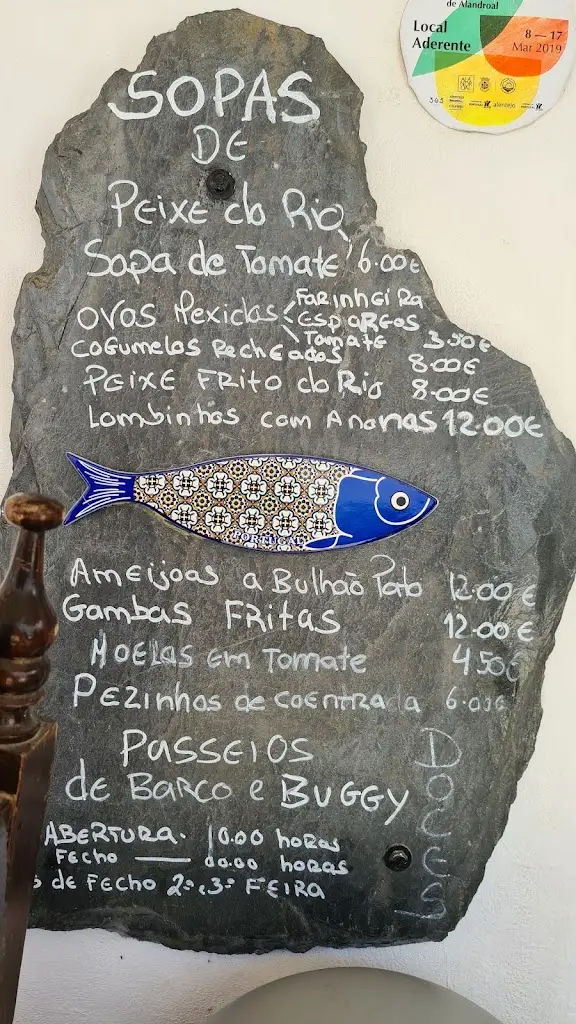 de Alandroal
Local
Aderente
8 — 17
Mar 2019
alentejo
SOPAS
DE
PEIXE do Rio
Sopa de Tomate 6.00€
OVOS Mexidos FARINHEIRA
ESPARGOS
Tomate 3.50€
COGUMELOS RECHEADOS 8.00€
PEIXE FRITO do Rio 8.00€
Lombinhos com Ananas 12.00€
PORTUGAL
AMEIJOAS a Bulhão Pato 12.00€
Gambas FRITAS 12.00€
MOELAS em Tomate 4.50€
PEZINHOS de COENTRADA 6.00€
PASSEIOS
de BARCO e BUGGY
DOCES
ABERTURA. 10.00 horas
FECHO — 00.00 horas
de FECHO 2ª,3ª FEIRA